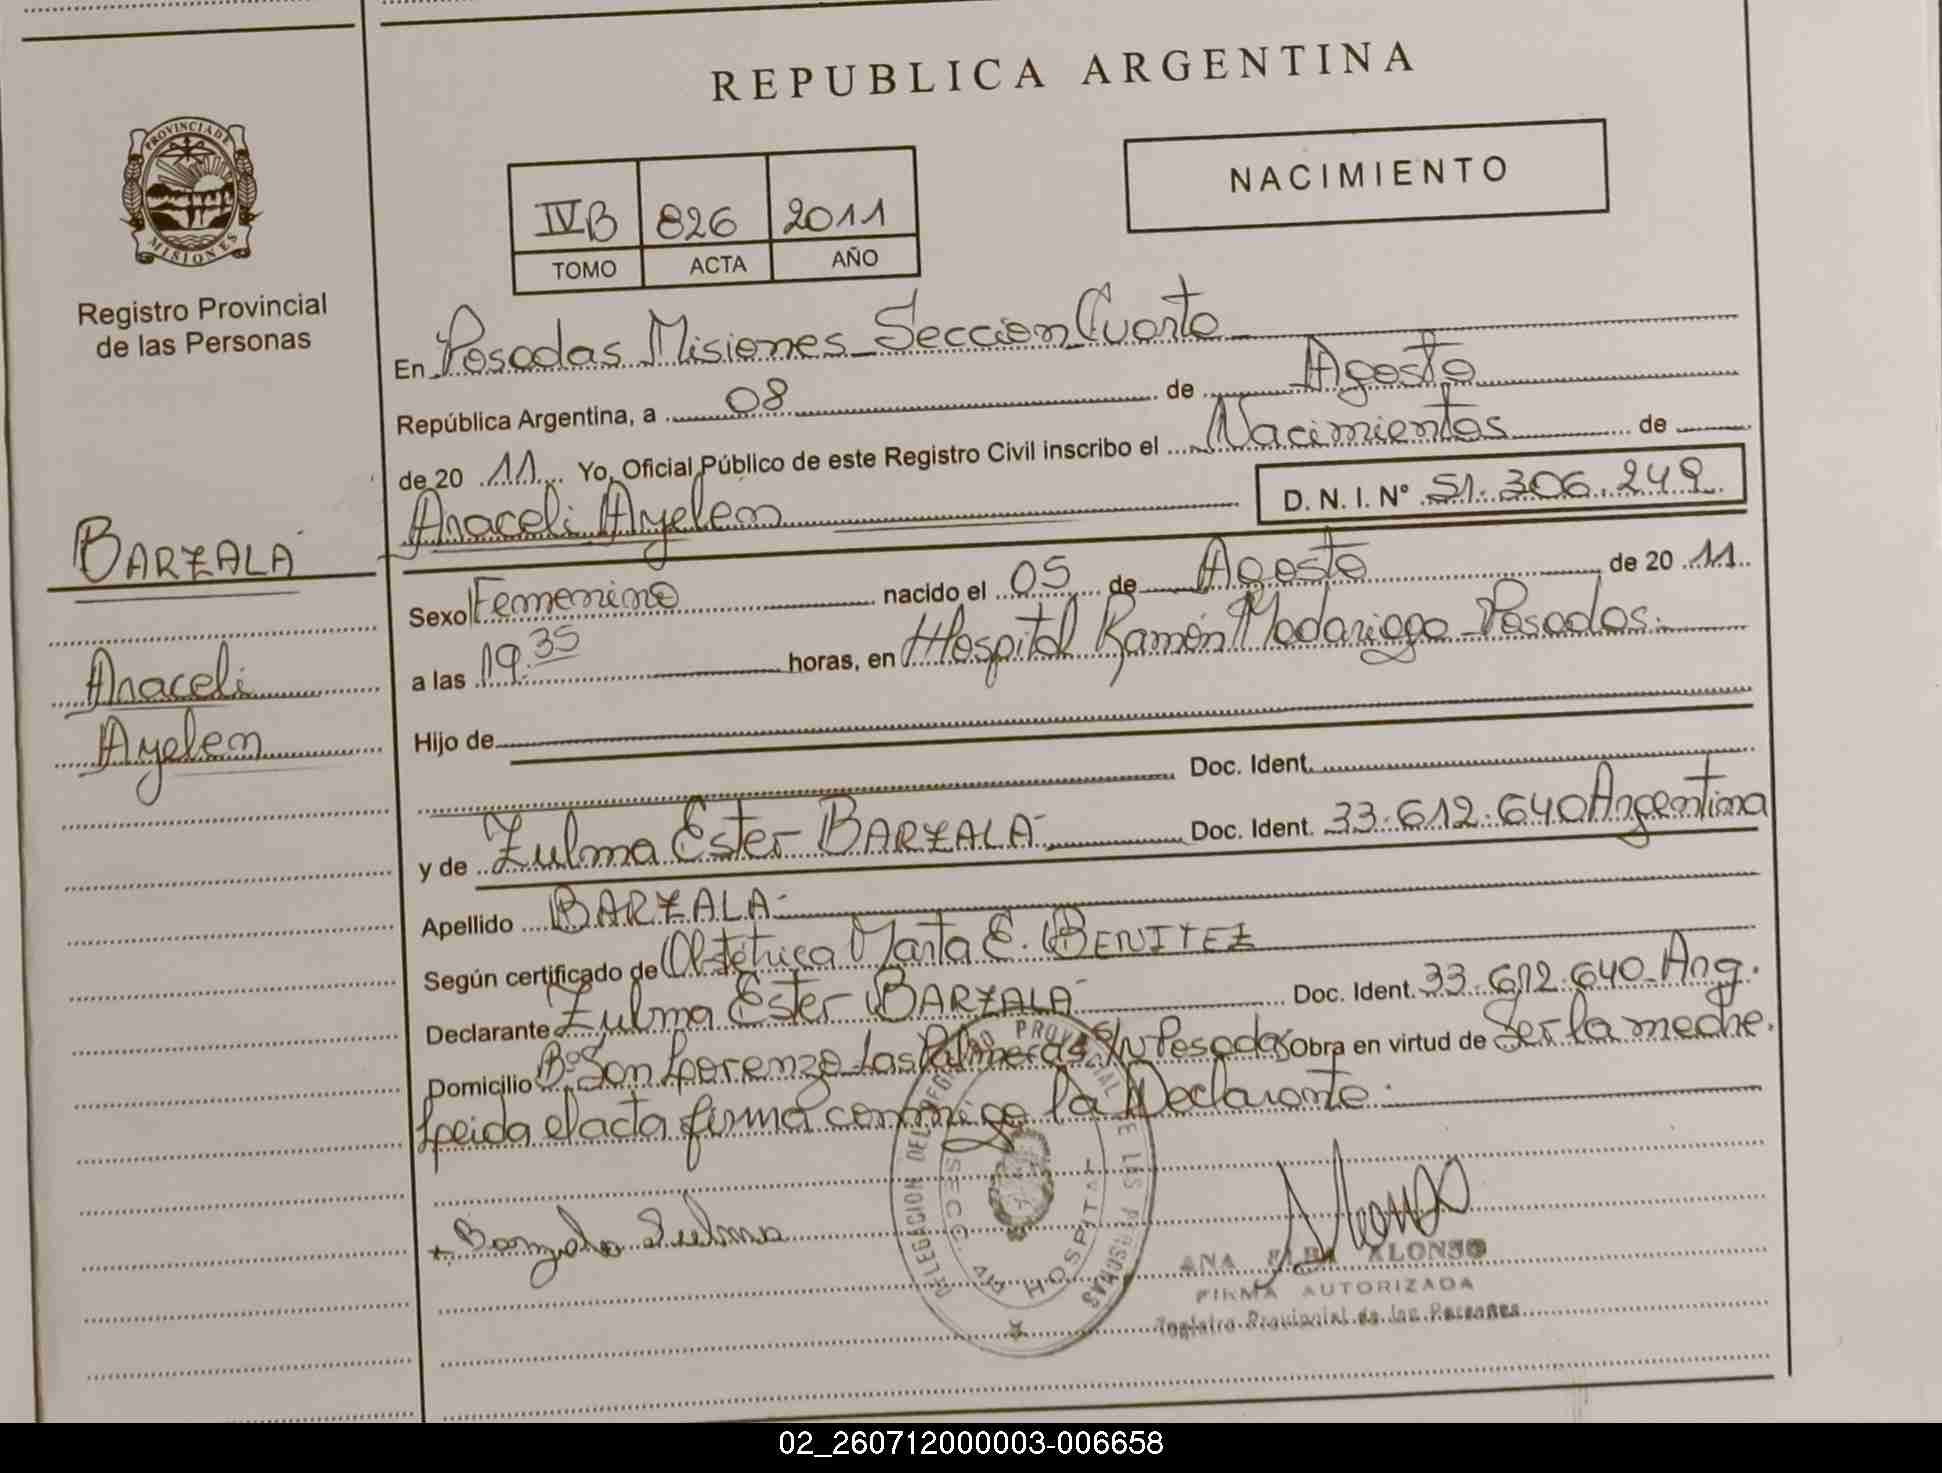 REPUBLICA ARGENTINA
PROVINCIA DE
MISIONES
Registro Provincial
de las Personas
NACIMIENTO
IVB 826 2011
TOMO ACTA AÑO
En Posadas Misiones Seccion Cuarta
República Argentina, a 08 de Agosto
de 20 11 Yo, Oficial Público de este Registro Civil inscribo el Nacimientos de
Araceli Ayelen D. N. I. Nº 51.306.249
BARZALA
Araceli
Ayelen
Sexo Femenino nacido el 05 de Agosto de 20 11
a las 19.35 horas, en Hospital Ramón Madariaga Posadas.
Hijo de
Doc. Ident.
y de Zulma Ester BARZALA Doc. Ident. 33.612.640 Argentina
Apellido BARZALA
Según certificado de Obstétrica Marta E. BENITEZ
Declarante Zulma Ester BARZALA Doc. Ident. 33.612.640 Arg.
Domicilio Bº San Lorenzo Las Palmeras S/N Posadas Obra en virtud de Ser la madre.
Leida el acta firma conmigo la Declarante.
Barzala Zulma
DELEGACION DEL REGISTRO PROVINCIAL DE LAS PERSONAS
SECC. 4ta HOSPITAL
ANA ELBA ALONSO
FIRMA AUTORIZADA
Registro Provincial de las Personas
02_260712000003-006658